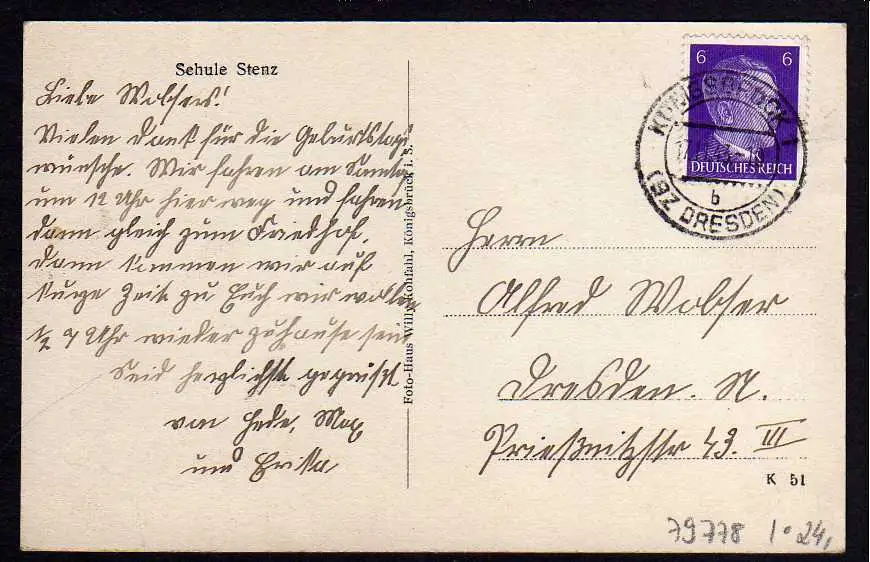 Schule Stenz
Liebe Wobsers!
Vielen Dank für die Geburtstags
wünsche. Wir fahren am Samstag
um 12 Uhr hier weg und fahren
dann gleich zum Friedhof,
dann kommen wir auf
kurze Zeit zu Euch wir wollen
½ 9 Uhr wieder zuhause sein
Seid herzlichst gegrüßt
von Hede, Max
und Erika
Foto-Haus Willy Kohfahl, Königsbrück i. S.
6 6
DEUTSCHES REICH
KÖNIGSBRÜCK 1
b
(BZ DRESDEN)
Herrn
Alfred Wobser
Dresden. N.
Prießnitzstr 43. III
K 51
79778 1° 24,